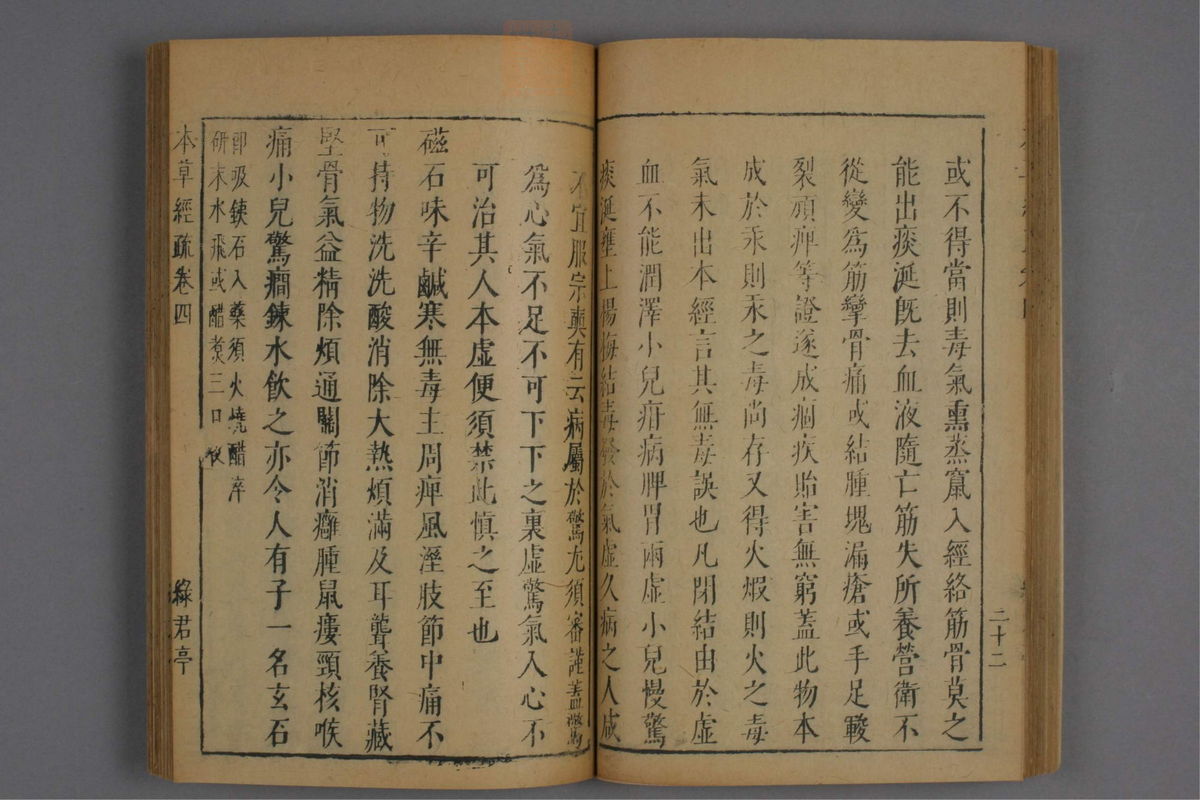 二十二
或不得當則毒氣熏蒸竄入經絡筋骨莫之
能出痰涎旣去血液隨亡筋失所養營衛不
從變爲筋攣骨痛或結腫塊漏瘡或手足皸
裂頑痺等證遂成痼疾貽害無窮蓋此物本
成於汞則汞之毒尚存又得火煆則火之毒
氣未出本經言其無毒誤也凡閉結由於虛
血不能潤澤小兒疳病脾胃兩虛小兒慢驚
痰涎壅上楊梅結毒發於氣虛久病之人咸
不宜服宗奭有云病屬於驚尤須審謹蓋驚
爲心氣不足不可下下之裏虛驚氣入心不
可治其人本虛便須禁此慎之至也
磁石味辛鹹寒無毒主周痺風溼肢節中痛不
可持物洗洗酸消除大熱煩滿及耳聾養腎藏
堅骨氣益精除煩通關節消癰腫鼠瘻頸核喉
痛小兒驚癇鍊水飮之亦令人有子一名玄石
卽吸鐵石入藥須火燒醋淬
研末水飛或醋煑三日夜
本草經疏卷四
綠君亭